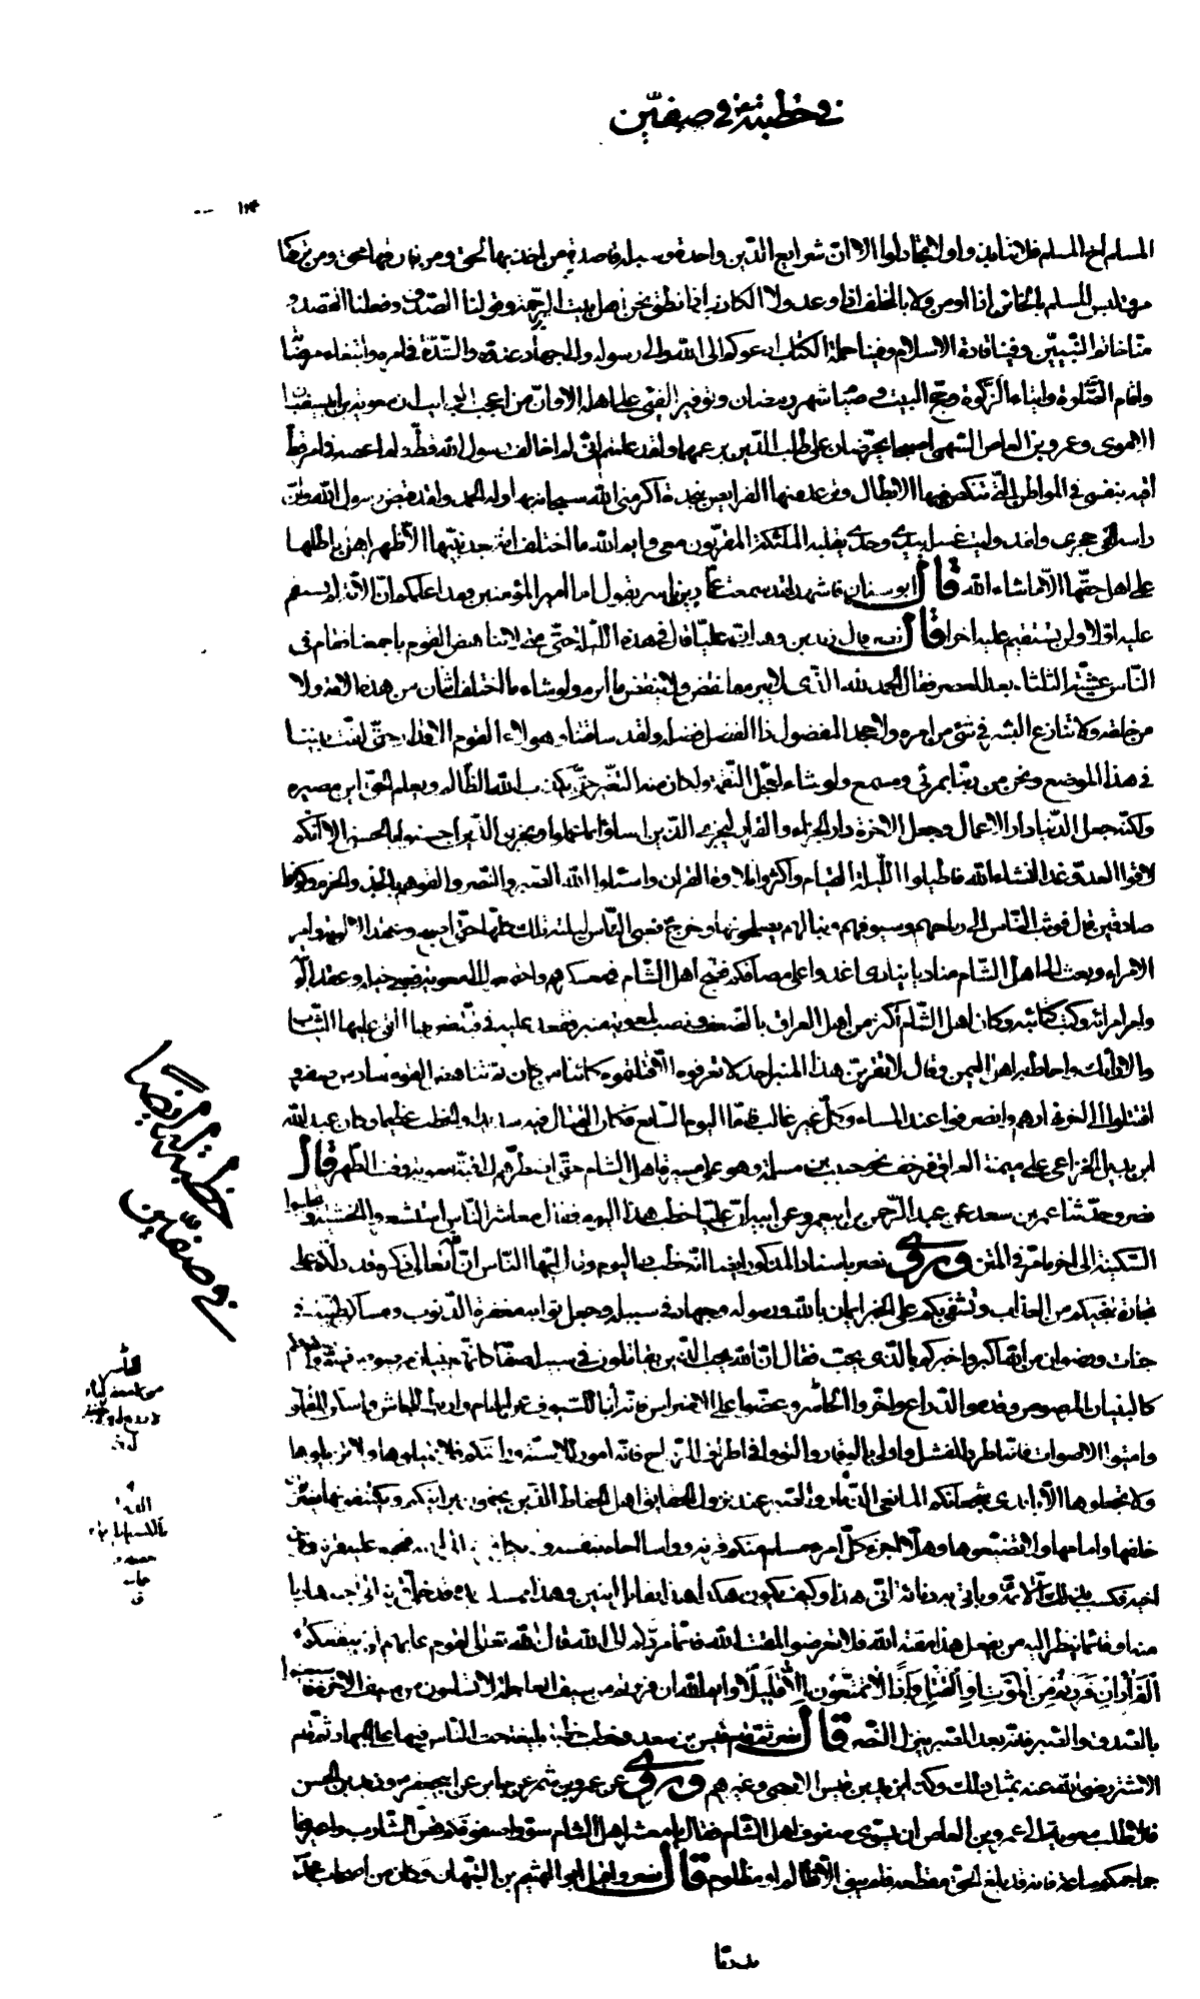 في خطبته في صفّين
المسلم اخ المسلم فلا تنابذوا ولا تخاذلوا الا ان شرايع الدّين واحدة وسبله قاصدة من اخذ بها لحق ومن فارقها محق ومن تركها
مرق ليس المسلم بالخائن اذا اؤتمن ولا بالمخلف اذا وعد ولا الكذاب اذا نطق نحن اهل بيت الرّحمة وقولنا الصّدق وفعلنا القصد و
منّا خاتم النّبيّين وفينا قادة الاسلام وفينا حملة الكتاب ادعوكم الى الله والى رسوله والى جهاد عدوّه والشّدّة في امره وابتغاء مرضاته
واقام الصّلوة وايتاء الزّكوة وحجّ البيت وصيام شهر رمضان وتوفير الفيء على اهله الا وانّ من اعجب العجايب ان معوية بن ابي سفيان
الاموى وعمرو بن العاص السّهمى اصبحا يحرّضان على طلب الدّين بزعمهما ولقد علمتم انّى لم اخالف رسول الله قطّ ولم اعصه في امر قطّ
اقيه بنفسى في المواطن الّتى تنكص فيها الابطال وترعد منها الفرايص بنجدة اكرمنى الله سبحانه بها وله الحمد ولقد قبض رسول الله وانّ
راسه لفى حجرى ولقد وليت غسله بيدى وحدى يقلبه الملئكة المقرّبون معى وايم الله ما اختلف امّة بعد نبيّها الا ظهر اهل باطلها
على اهل حقّها الا ما شاء الله قال ابو سنان فاشهد لقد سمعت عمّار بن ياسر يقول اما امير المؤمنين فقد اعلمكم انّ الامّة لم تستقم
عليه اوّلا ولن تستقيم عليه اخرا قال نصر قال زيد بن وهب انّ عليّا قال فى هذه اللّيلة حتّى متى لا نناهض القوم باجمعنا فقام فى
النّاس عشيّة الثلثاء بعد العصر فقال الحمد لله الّذى لا يبرم ما نقض ولا ينقض ما ابرم ولو شاء ما اختلف اثنان من هذه الامّة ولا
من خلقه ولا تنازع البشر في شئ من امره ولا جحد المفضول ذا الفضل فضله ولقد ساقتنا وهؤلاء القوم الاقدار حتّى لفّت بيننا
في هذا الموضع ونحن من ربّنا بمرئى ومسمع ولو شاء لعجّل النّقمة ولكان منه التّغيير حتّى يكذب الله الظّالم ويعلم الحقّ اين مصيره
ولكنّه جعل الدّنيا دار الاعمال وجعل الاخرة دار الجزاء والقرار ليجزى الّذين اساؤا بما عملوا ويجزى الّذين احسنوا بالحسنى الا انّكم
لاقوا العدوّ غدا انشاء الله فاطيلوا اللّيلة القيام واكثروا تلاوة القران واسئلوا الله الصّبر والنّصر والقوهم بالجدّ والحزم وكونوا
صادقين قال فوثب النّاس الى رماحهم وسيوفهم ونبالهم يصلحونها وخرج فعبى النّاس ليلته تلك كلّها حتّى اصبح وعقد الالوية وامر
الامراء وبعث الى اهل الشّام مناديا ينادى اغدوا على مصافّكم فضجّ اهل الشّام فى معسكرهم واجتمعوا الى معوية فعبى خيله وعقد الويته
وامر امرائه وكتب كتائبه وكان اهل الشّام اكثر من اهل العراق بالضعف ونصب لمعوية منبر فقعد عليه في قبّة ضربها القى عليها الثياب
والارائك واحاط به اهل اليمن وقال لا يقربنّ هذا المنبر احد لا تعرفونه الا قتلتموه كائنا من كان
اقتتلوا الى اخر نهارهم وانصرفوا عند المساء وكلّ غير غالب فامّا اليوم السّابع فكان القتال فيه شديدا والخطب عظيما وكان عبد الله
ابن بديل الخزاعى على ميمنة العراق فزحف نحو حبيب بن مسلمة وهو على ميسرة اهل الشام حتّى اضطرّهم الى قبّة معوية وقت الظّهر قال
نصر وحدّثنا عمر بن سعد عن عبد الرّحمن بن ابى عمرو عن ابيه انّ عليّا خطب هذا اليوم فقال معاشر النّاس استشعروا الخشية وتجلببوا
السّكينة الى اخر ما مرّ في المتن وروى نصر باسناده المذكور ايضا انّه خطب ذلك اليوم وقال ايّها النّاس انّ الله تعالى ذكره قد دلّكم على
تجارة تنجيكم من العذاب وتشفى بكم على الخير ايمان بالله ورسوله وجهاد فى سبيله وجعل ثوابه مغفرة الذّنوب ومساكن طيّبة في
جنّات ورضوان من الله اكبر واخبركم بالّذى يحبّ فقال انّ الله يحبّ الّذين يقاتلون في سبيله صفّا كانّهم بنيان مرصوص فسوّوا صفوفكم
كالبنيان المرصوص وقدّموا الدّارع واخّروا الحاسر وعضّوا على الاضراس فانّه انبا للسّيوف عن الهام واربط للجاش واسكن للقلوب
واميتوا الاصوات فانّه اطرد للفشل واولى بالوقار والتووا في اطراف الرّماح فانّه امور للاسنّة وراياتكم فلا تميلوها ولا تزيلوها
ولا تجعلوها الا بايدى شجعانكم المانعى الذّمار والصّبر عند نزول الحقايق اهل الحفاظ الّذين يحفون براياتكم ويكتنفونها يضربون
خلفها وامامها ولا تضيّعوها وهلا اجزء كلّ امرء مسلم منكم قرنه وواسا اخاه بنفسه ولم يكل قرنه الى اخيه فيجتمع عليه قرنه وقرن
اخيه فيكسب بذلك اللائمة وياتى به دنائة انّى هذا وكيف يكون هكذا هذا يقاتل اثنين وهذا ممسك يده قد خلّى قرنه الى اخيه هاربا
منه او قائما ينظر اليه من يفعل هذا مقته الله فلا تعرضوا لمقت الله فانّما مردّكم الى الله قال الله تعالى لقوم عابهم لن ينفعكم
الفرار ان فررتم من الموت او القتل واذا لا تمتّعون الا قليلا وايم الله ان فررتم من سيف العاجلة لا تسلمون من سيف الاخرة استعينوا
بالصّدق والصّبر فانّه بعد الصّبر ينزل النّصر قال نصر ثمّ قام قيس بن سعد وخطب خطبة بليغة حثّ النّاس فيها على الجهاد ثمّ قام
الاشتر رضى الله عنه بمثل ذلك وكذا يزيد بن قيس الارحبى وغيرهم وروى عن عمرو بن شمر عن جابر عن ابى جعفر وزيد بن الحسن
قالا طلب معوية الى عمرو بن العاص ان يسوّى صفوف اهل الشّام فقال يا معشر اهل الشام سوّوا صفوفكم قصّ الشّارب واعيرونا
جماجمكم ساعة فانه قد بلغ الحق مقطعه فلم يبق الا ظالم او مظلوم قال نصر واقبل ابو الهيثم بن التّيهان وكان من اصحاب محمّد
خطبته ايضا
في صفّين